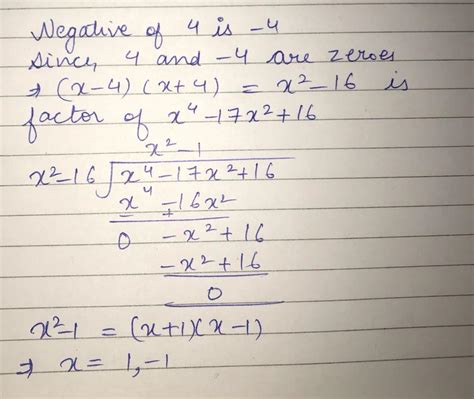 Negative of 4 is -4
Since, 4 and -4 are zeroes
⇒ (x-4) (x+4) = x²-16 is
factor of x⁴-17x²+16
x²-1
x²-16 √x⁴-17x²+16
x⁴ -16x²
- +
0 -x²+16
-x²+16
0
x²-1 = (x+1)(x-1)
⇒ x = 1,-1